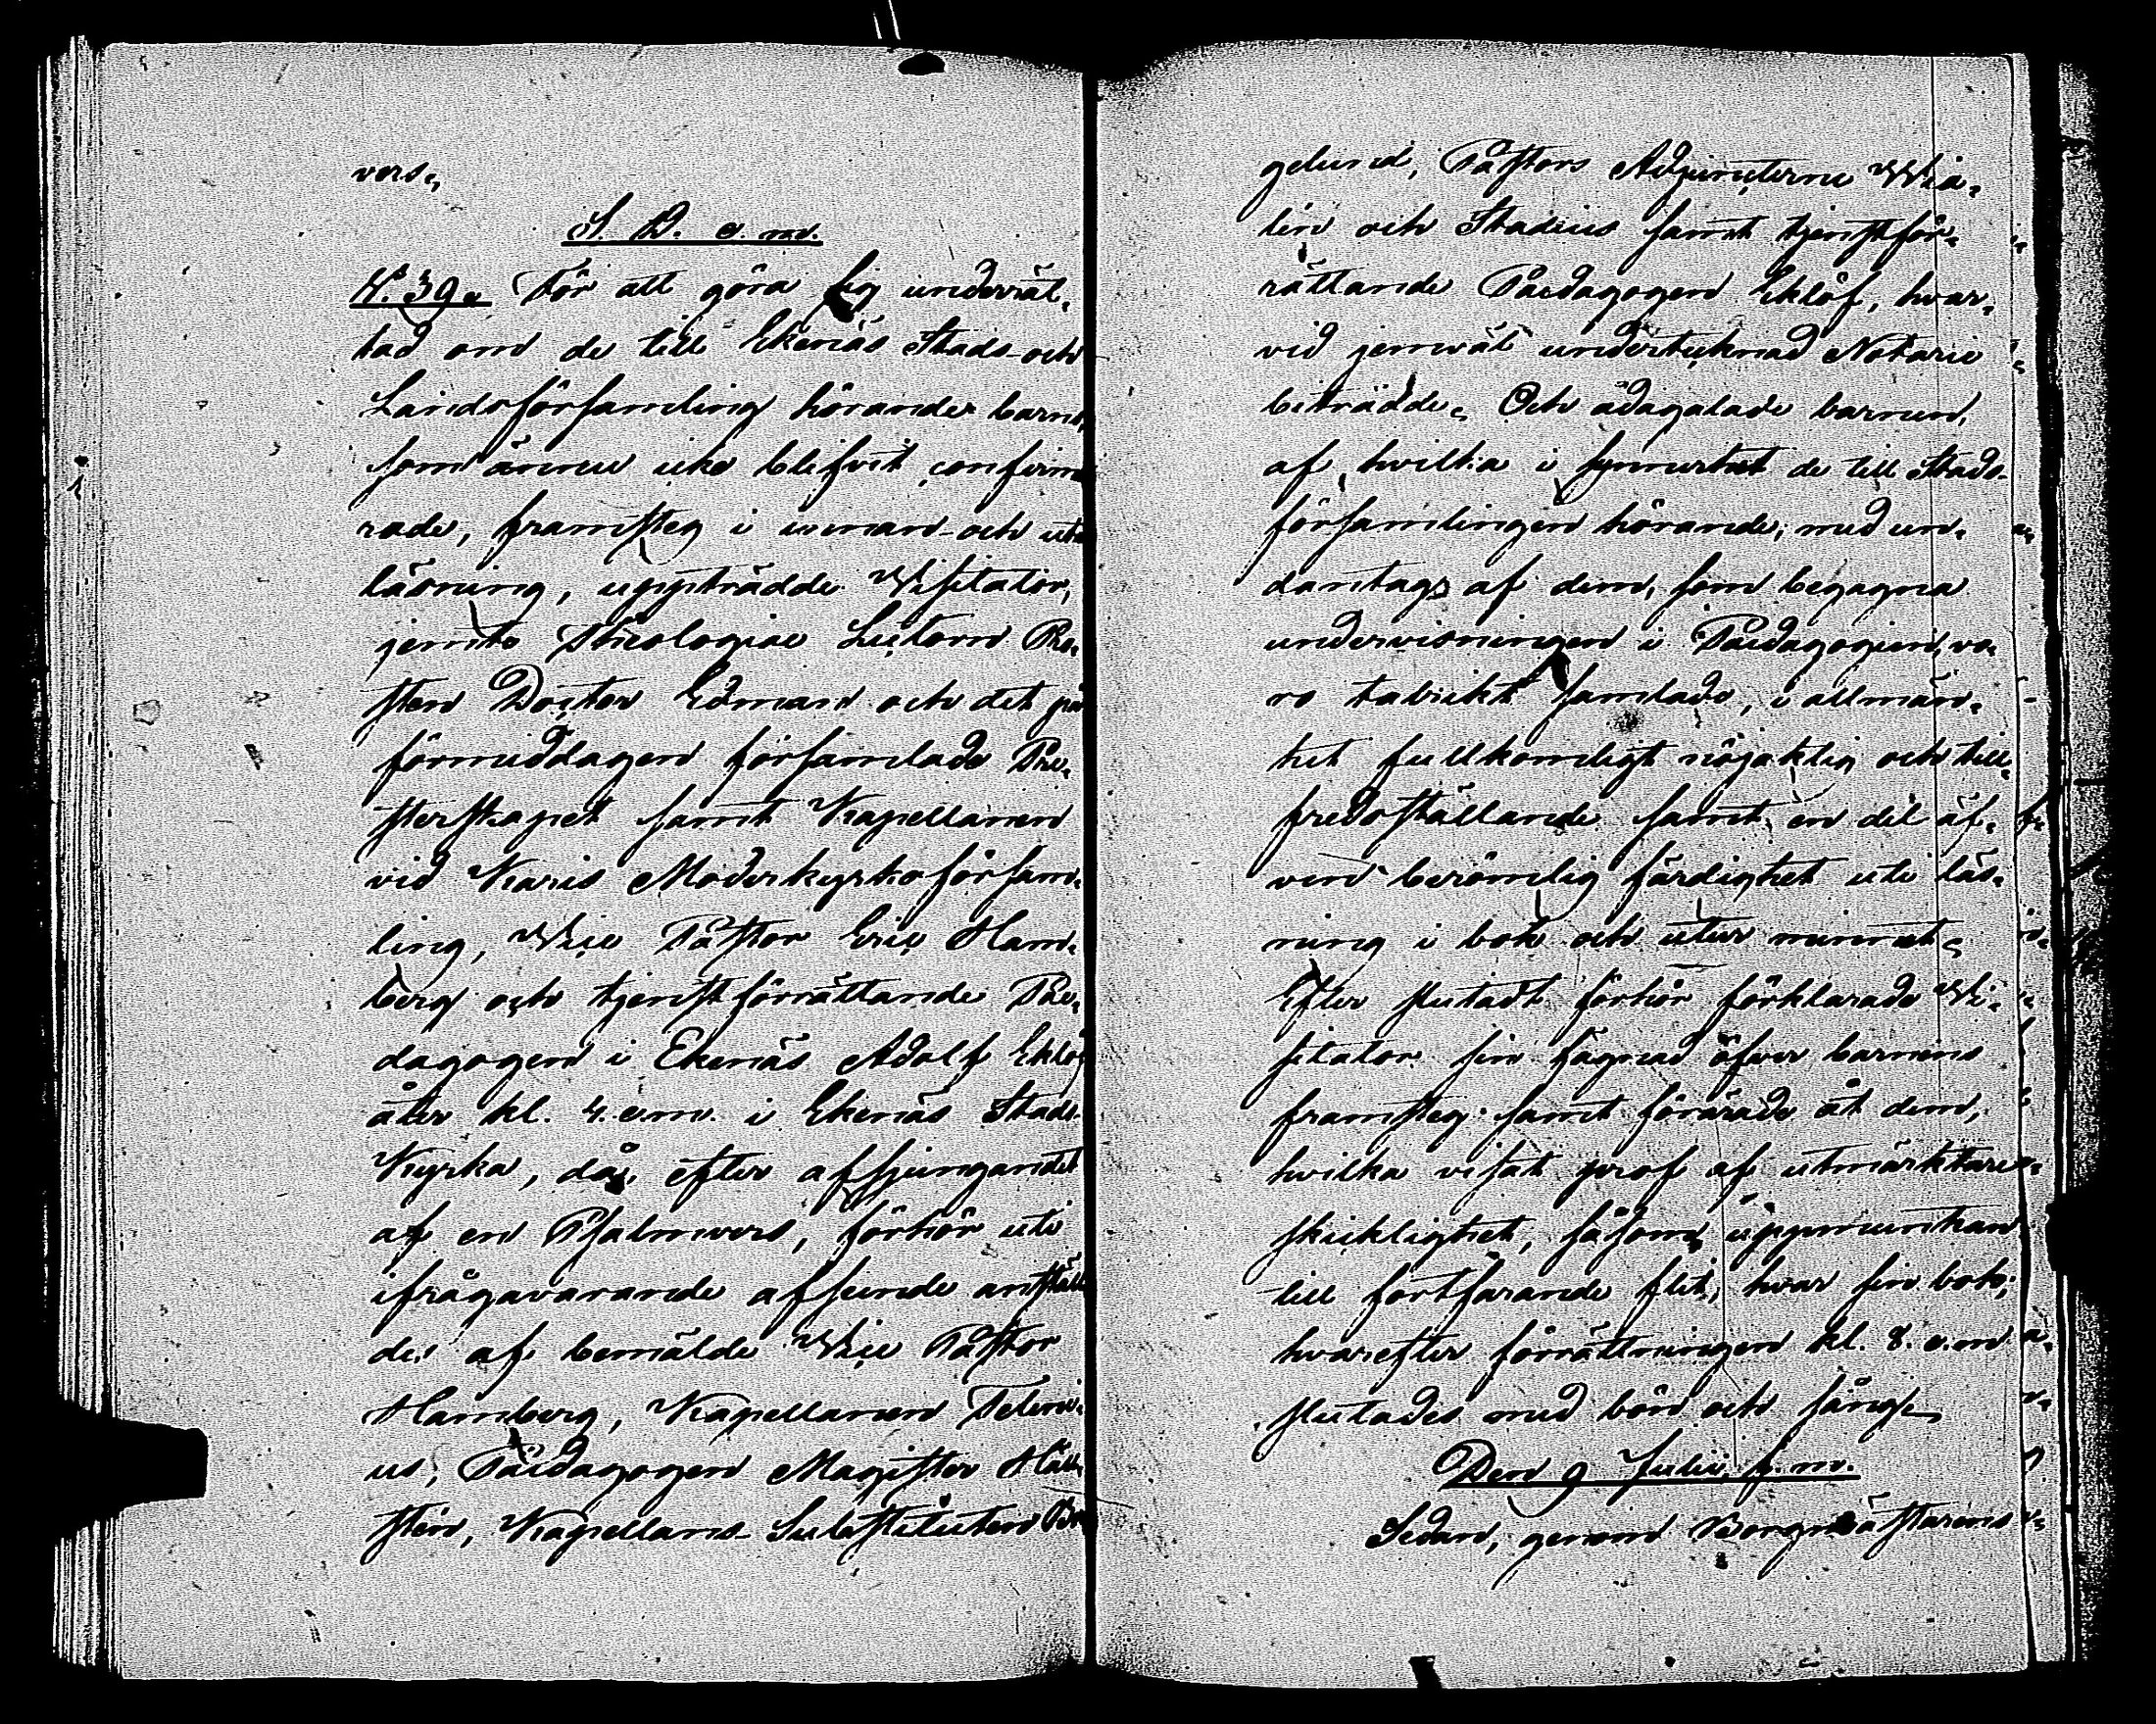 vers.
S. D. e. m.
N. 39. För att göra sig underrät-
tad om de till Ekenäs Stads- och
Landsförsamling hörande barns,
som ännu icke blifvit confirme-
rade, framsteg i innan- och uta
läsning, uppträdde Visitator,
jemte Theologiae Lectorn Pro-
sten Doctor Edman och det på
förmiddagen församlade Pre-
sterskapet samt Kapellanen
vid Karis Moderkyrkoförsam-
ling, Vice Pastor Eric Ham-
berg och tjenstförrättande Pae-
dagogen i Ekenäs Adolf Eklöf
åter kl. 4. e.m. i Ekenäs Stads-
Kyrka, då, efter afsjungandet
af en Psalmvers, förhör uti
ifrågavarande afseende anställ
des af bemälde Vice Pastor
Hamberg, Kapellanen Teleni-
us, Paedagogen Magister Häll-
stén, Kapellans Substituten
gelund, Pastors Adjuncterne
lin och Stadius samt tjenstför-
rättande Paedagogen Eklöf, hvar-
vid jemväl undertecknad Notarie
biträdde. Och ådagalade barnen,
af hvilka i synnerhet de till Stads-
församlingen hörande, med un-
dantag af dem, som begagna
undervisningen i Paedagogien, vo-
ro talrikt samlade, i allmän-
het fullkomligt nöjaktig och till-
fredsställande samt en del äf-
ven berömlig färdighet uti läs-
ning i bok och utur minnet.
Efter slutadt förhör förklarade Vi-
sitator sin fägnad öfver barnens
framsteg samt förärade åt dem,
hvilka visat prof af utmärktare
skicklighet, såsom uppmuntran
till fortfarande flit, hvar sin bok;
hvarefter förrättningen kl. 8. e.m
slutades med bön och sång.
Den 9 Julii f. m.
Sedan, genom Borgmästarens